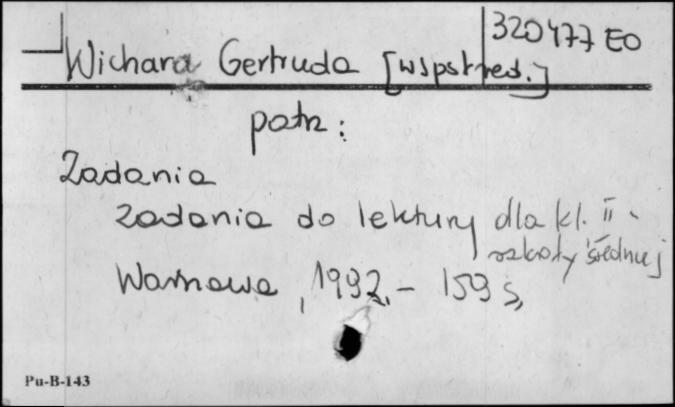 320477 EO
Wichara Gertruda [współred.]
patrz:
Zadania
Zadania do lektury dla kl. II
szkoły średniej
Warszawa, 1992, - 159 s,
Pu-B-143